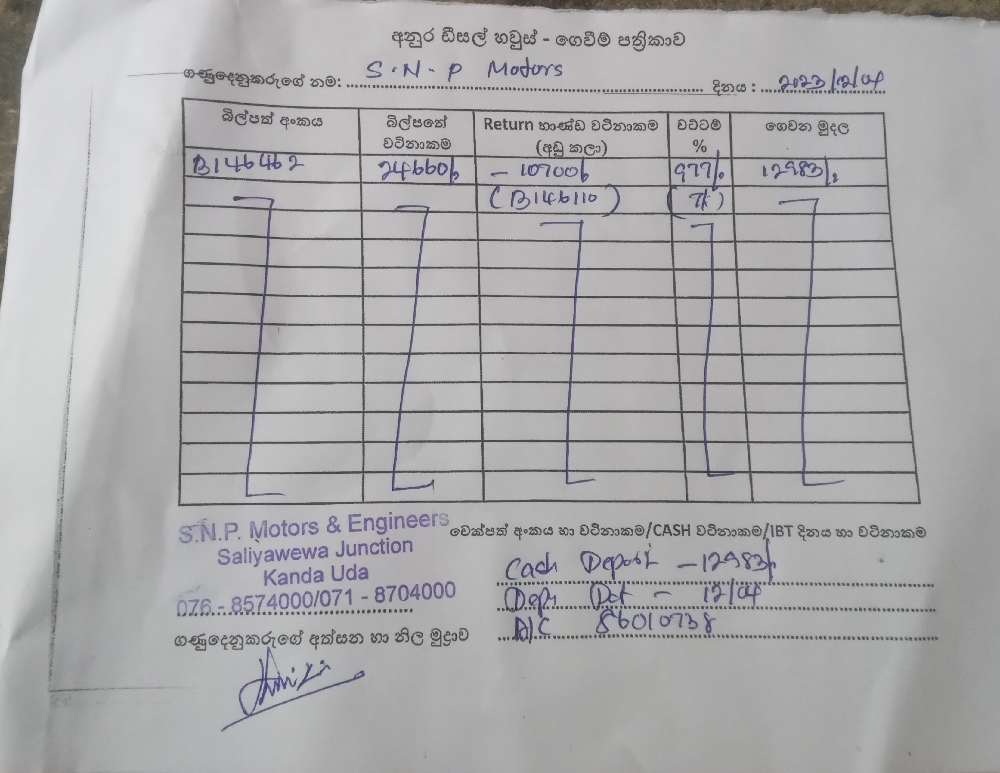 අනුර ඩීසල් හවුස් - ගෙවීම් පත්‍රිකාව
ගණුදෙනුකරුගේ නම: S.N.P Motors දිනය : 2023/12/04
බිල්පත් අංකය බිල්පතේ වටිනාකම Return භාණ්ඩ වටිනාකම (අඩු කලා) වට්ටම් % ගෙවන මුදල
B146462 24660/- - 10700/- 977/- 12983/-
(B146110) (7%)
S.N.P. Motors & Engineers
Saliyawewa Junction
Kanda Uda
076 - 8574000/071 - 8704000
ගණුදෙනුකරුගේ අත්සන හා නිල මුද්‍රාව
චෙක්පත් අංකය හා වටිනාකම/CASH වටිනාකම/IBT දිනය හා වටිනාකම
Cash Deposit - 12983/-
Depo Dat - 12/04
A/C 86010738